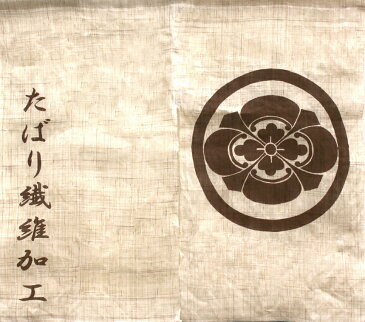 たばり繊維加工